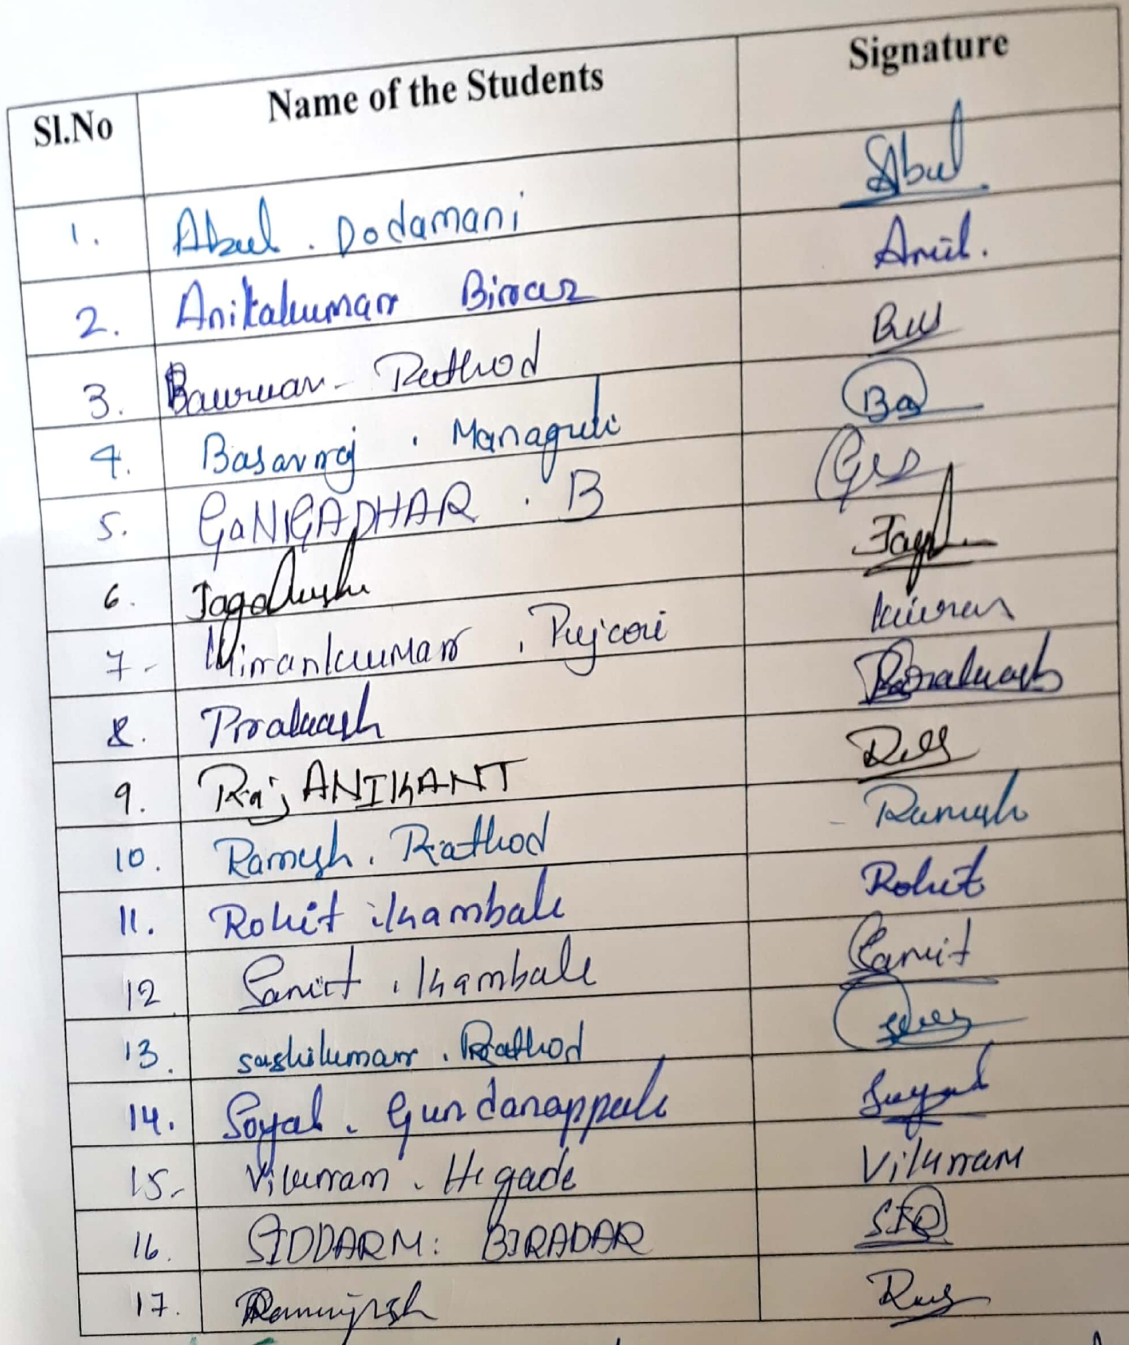 Sl.No Name of the Students Signature
1. Abul . Dodamani Abul
2. Anilakumarr Biraar Anil.
3. Rathod
4. Basavraj . Managuli Ba
5. GaNGADHAR . B
6. Jagadush
7. Kirrankumarr . Pujari kiuran
8. Prrakash Prrakash
9. RajANIKANT
10. Ramesh . Rathod Ramesh
11. Rohit . Kambale Rohit
12 Samit . Kambale Samit
13. sashikumarr . Rathod
14. Soyal . Gundanappale Suyal
15. Vikrram . Hegade Vikrram
16. SIDDARM: BIRADAR SIR
17.